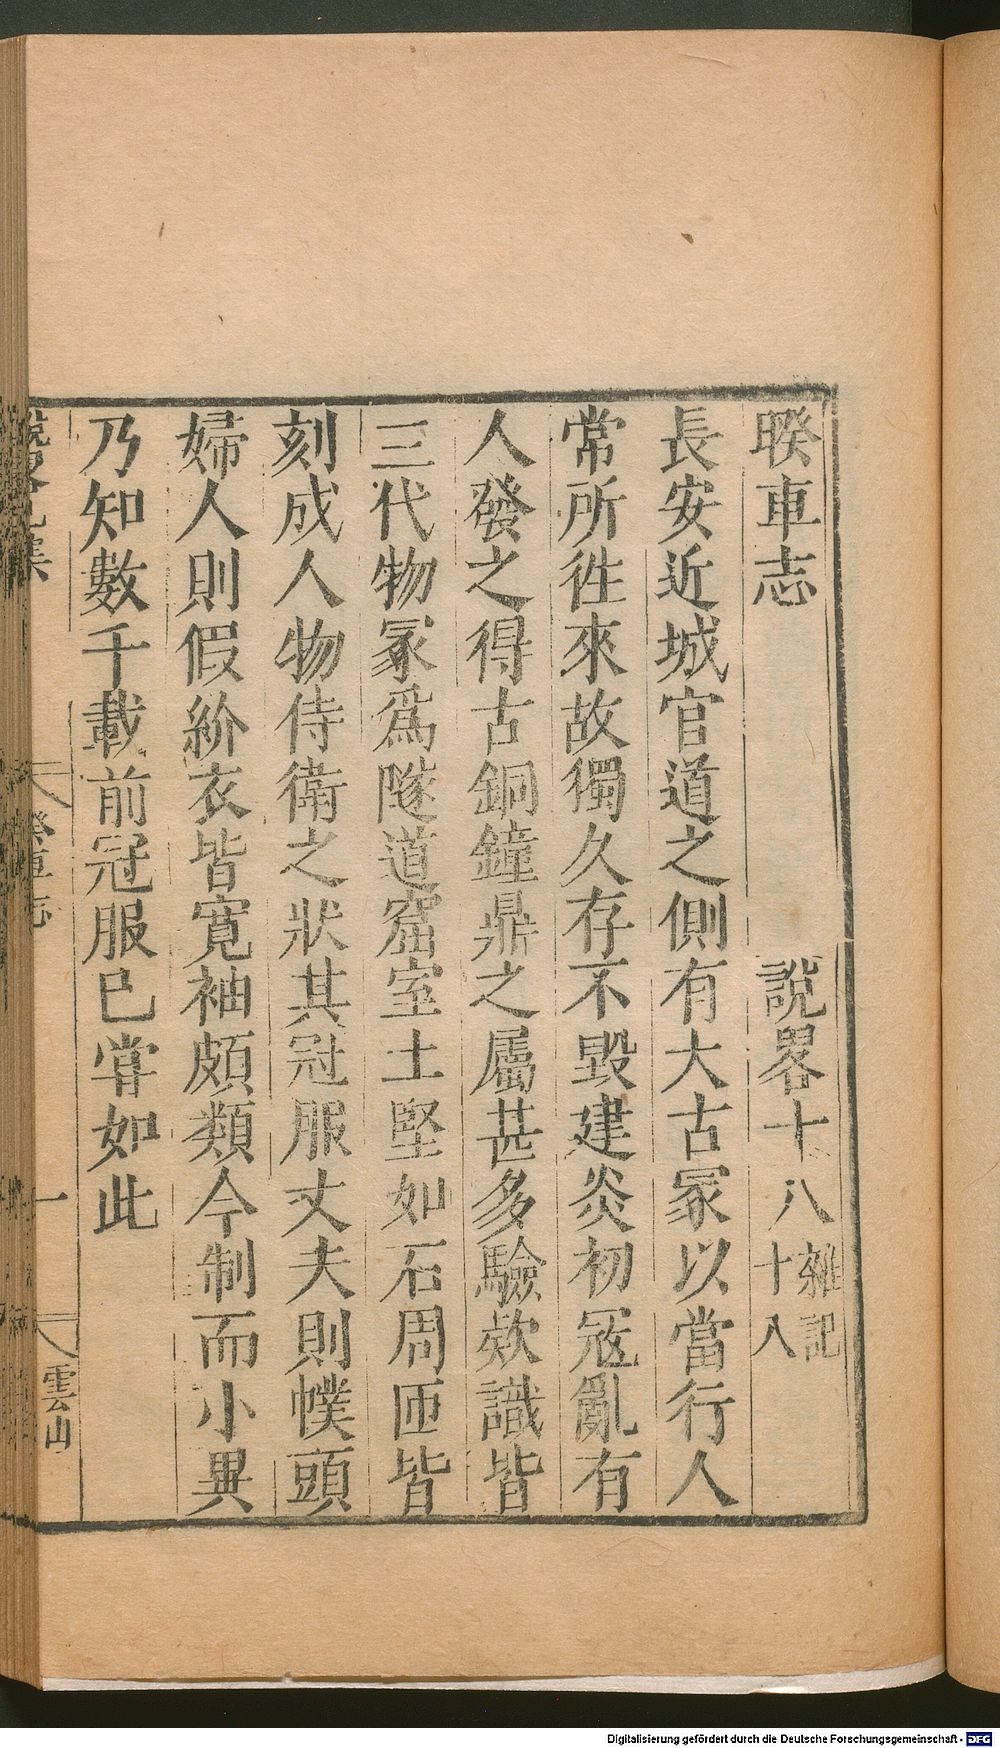 睽車志 說畧十八 雜記十八
長安近城官道之側有大古冢以當行人
常所徃來故獨久存不毀建炎初冦亂有
人發之得古銅鐘鼎之屬甚多驗欵識皆
三代物冢爲隧道窟室土堅如石周匝皆
刻成人物侍衛之狀其冠服丈夫則幞頭
婦人則假紒衣皆寬袖頗類今制而小異
乃知數千載前冠服巳甞如此
車志
一
雲山
Digitalisierung gefördert durch die Deutsche Forschungsgemeinschaft - DFG